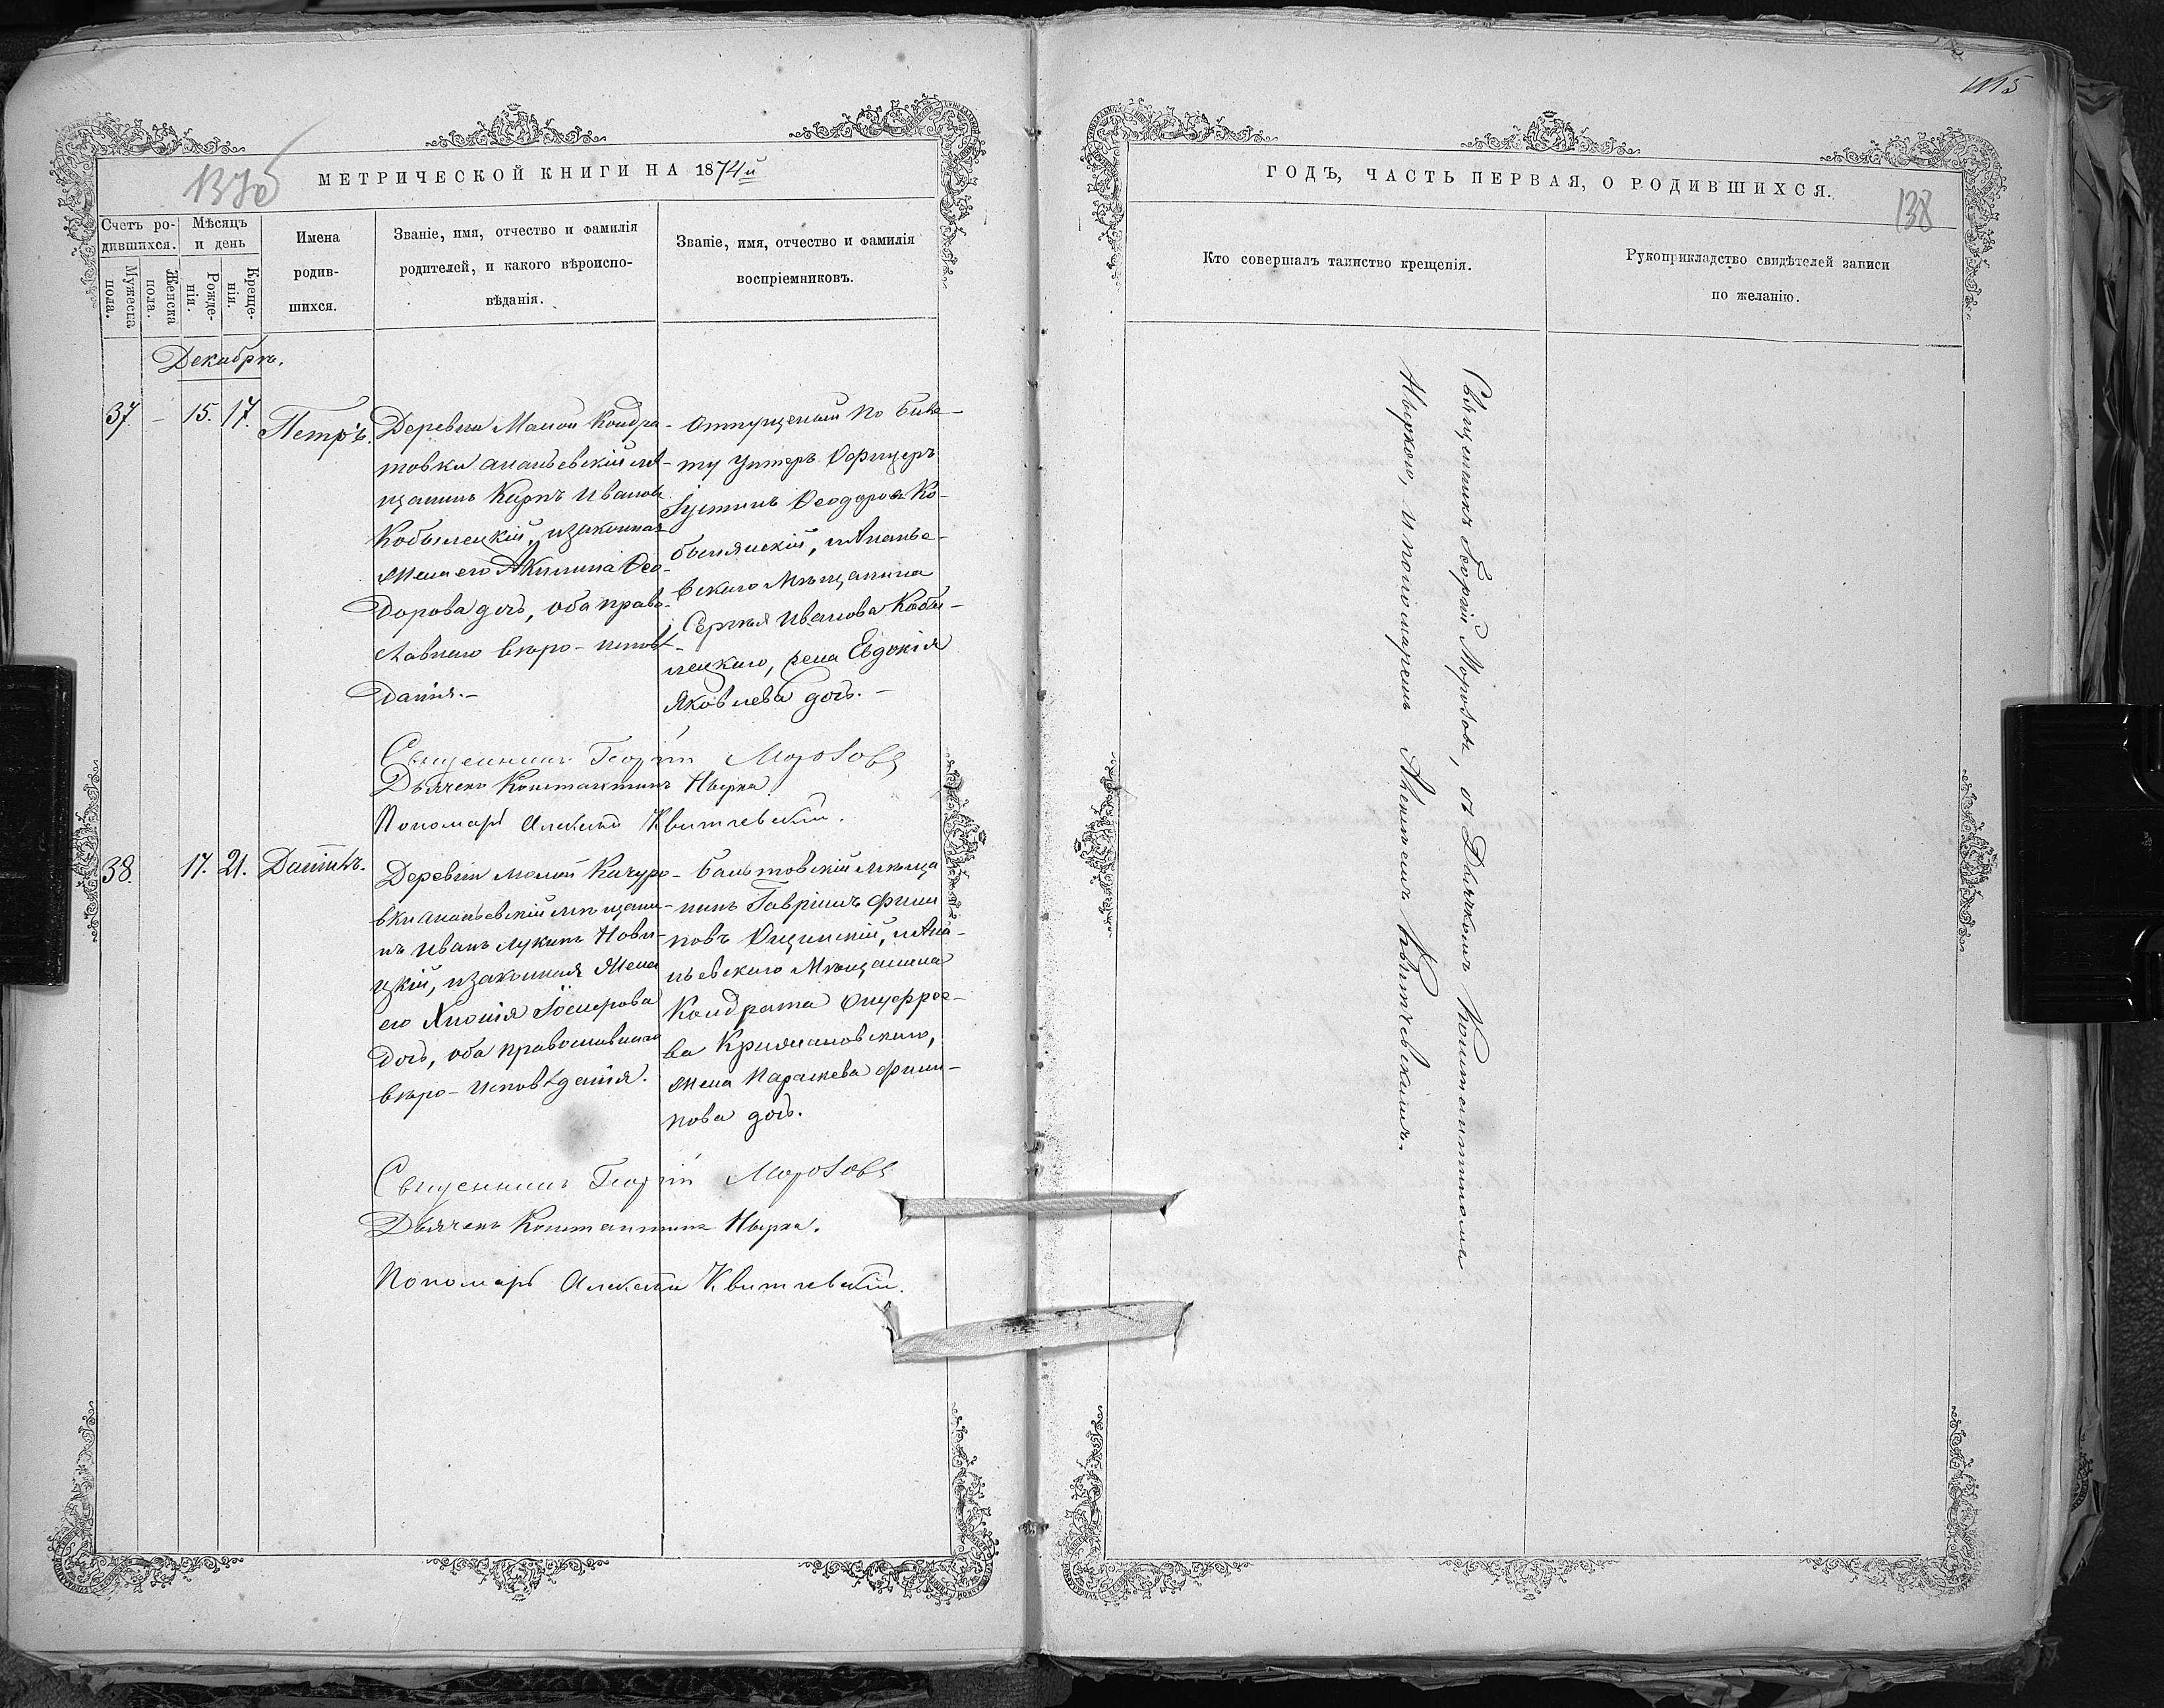 137об
МЕТРИЧЕСКОЙ КНИГИ НА 1874й
Счетъ родившихся.
Мужеска пола.
Женска пола.
Мѣсяцъ и день
Рожденія.
Крещенія.
Имена
родив-
шихся.
Званіе, имя, отчество и фамилія
родителей, и какого вѣроиспо-
вѣданія.
Званіе, имя, отчество и фамилія
воспріемниковъ.
Декабрь.
37. – 15. 17. Петръ.
Деревни Малой Кондра-
товки ананьевскій мѣ-
щанинъ Карпъ Ивановъ
Кобылецкій, и законная
жена его Акилина Ѳео-
дорова дочь, оба право-
славнаго вѣро-исповѣ-
данія.–
Отпущеный по биле-
ту Унтеръ Офицеръ
Іустинъ Ѳеодоровъ Ко-
былянскій, и Ананье-
вскаго Мѣщанина
Сергѣя Иванова Кобы-
лецкаго, жена Евдокія
Яковлева дочь.–
Священникъ Георгій Морозовъ
Дьячекъ Константинъ Нырка.
Пономарь Алексѣй Квитчевскій.
38. 17. 21. Даніилъ.
Деревни Малой Качуро-
вки ананьевскій мѣщани-
нъ Иванъ Лукинъ Нови-
цкій, и законная жена
его Хионія
дочь, оба православнаго
вѣро-исповѣданія.
Балтовскій мѣща
нинъ Гавріилъ Фили
повъ Ѳищинскій, и Ана-
ньевскаго Мѣщанина
Кондрата Онуфрое-
ва Крижановскаго,
жена Параскева Фили-
пова дочь.
Священникъ Георгій Морозовъ
Дьячекъ Константинъ Нырка.
Пономарь Алексѣй Квитчевскій.
ГОДЪ, ЧАСТЬ ПЕРВАЯ, О РОДИВШИХСЯ.
138
Кто совершалъ таинство крещенія.
Рукоприкладство свидѣтелей записи
по желанію.
Священникъ Георгій Морозовъ, съ Дьячкомъ Константиномъ
Ныркою, и пономаремъ Алексѣемъ Квитчевскимъ.